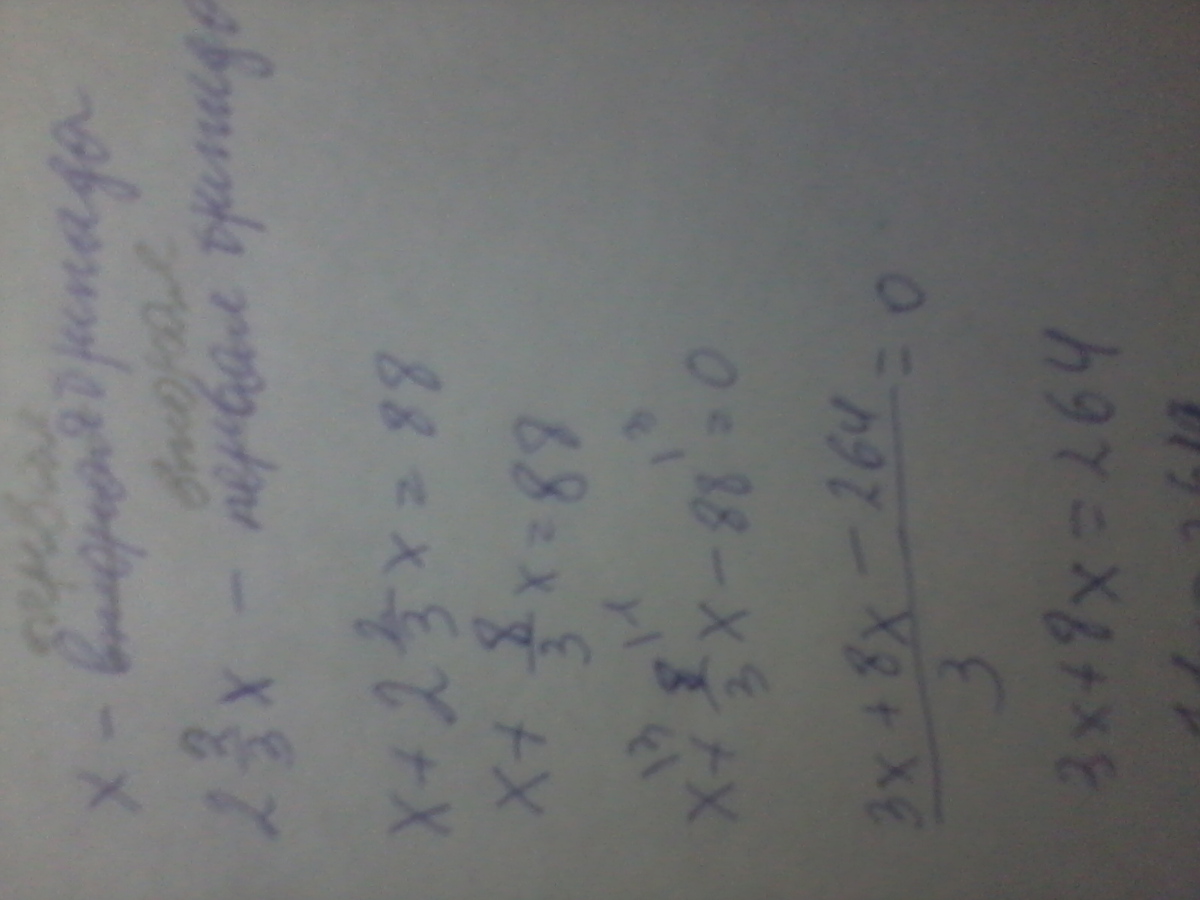 первая
x - вторая бригада
вторая
2 2/3 x - первая бригада
x + 2 2/3 x = 88
x + 8/3 x = 88
x + 8/3 x - 88 = 0
3x + 8x - 264 = 0
3
3x + 8x = 264